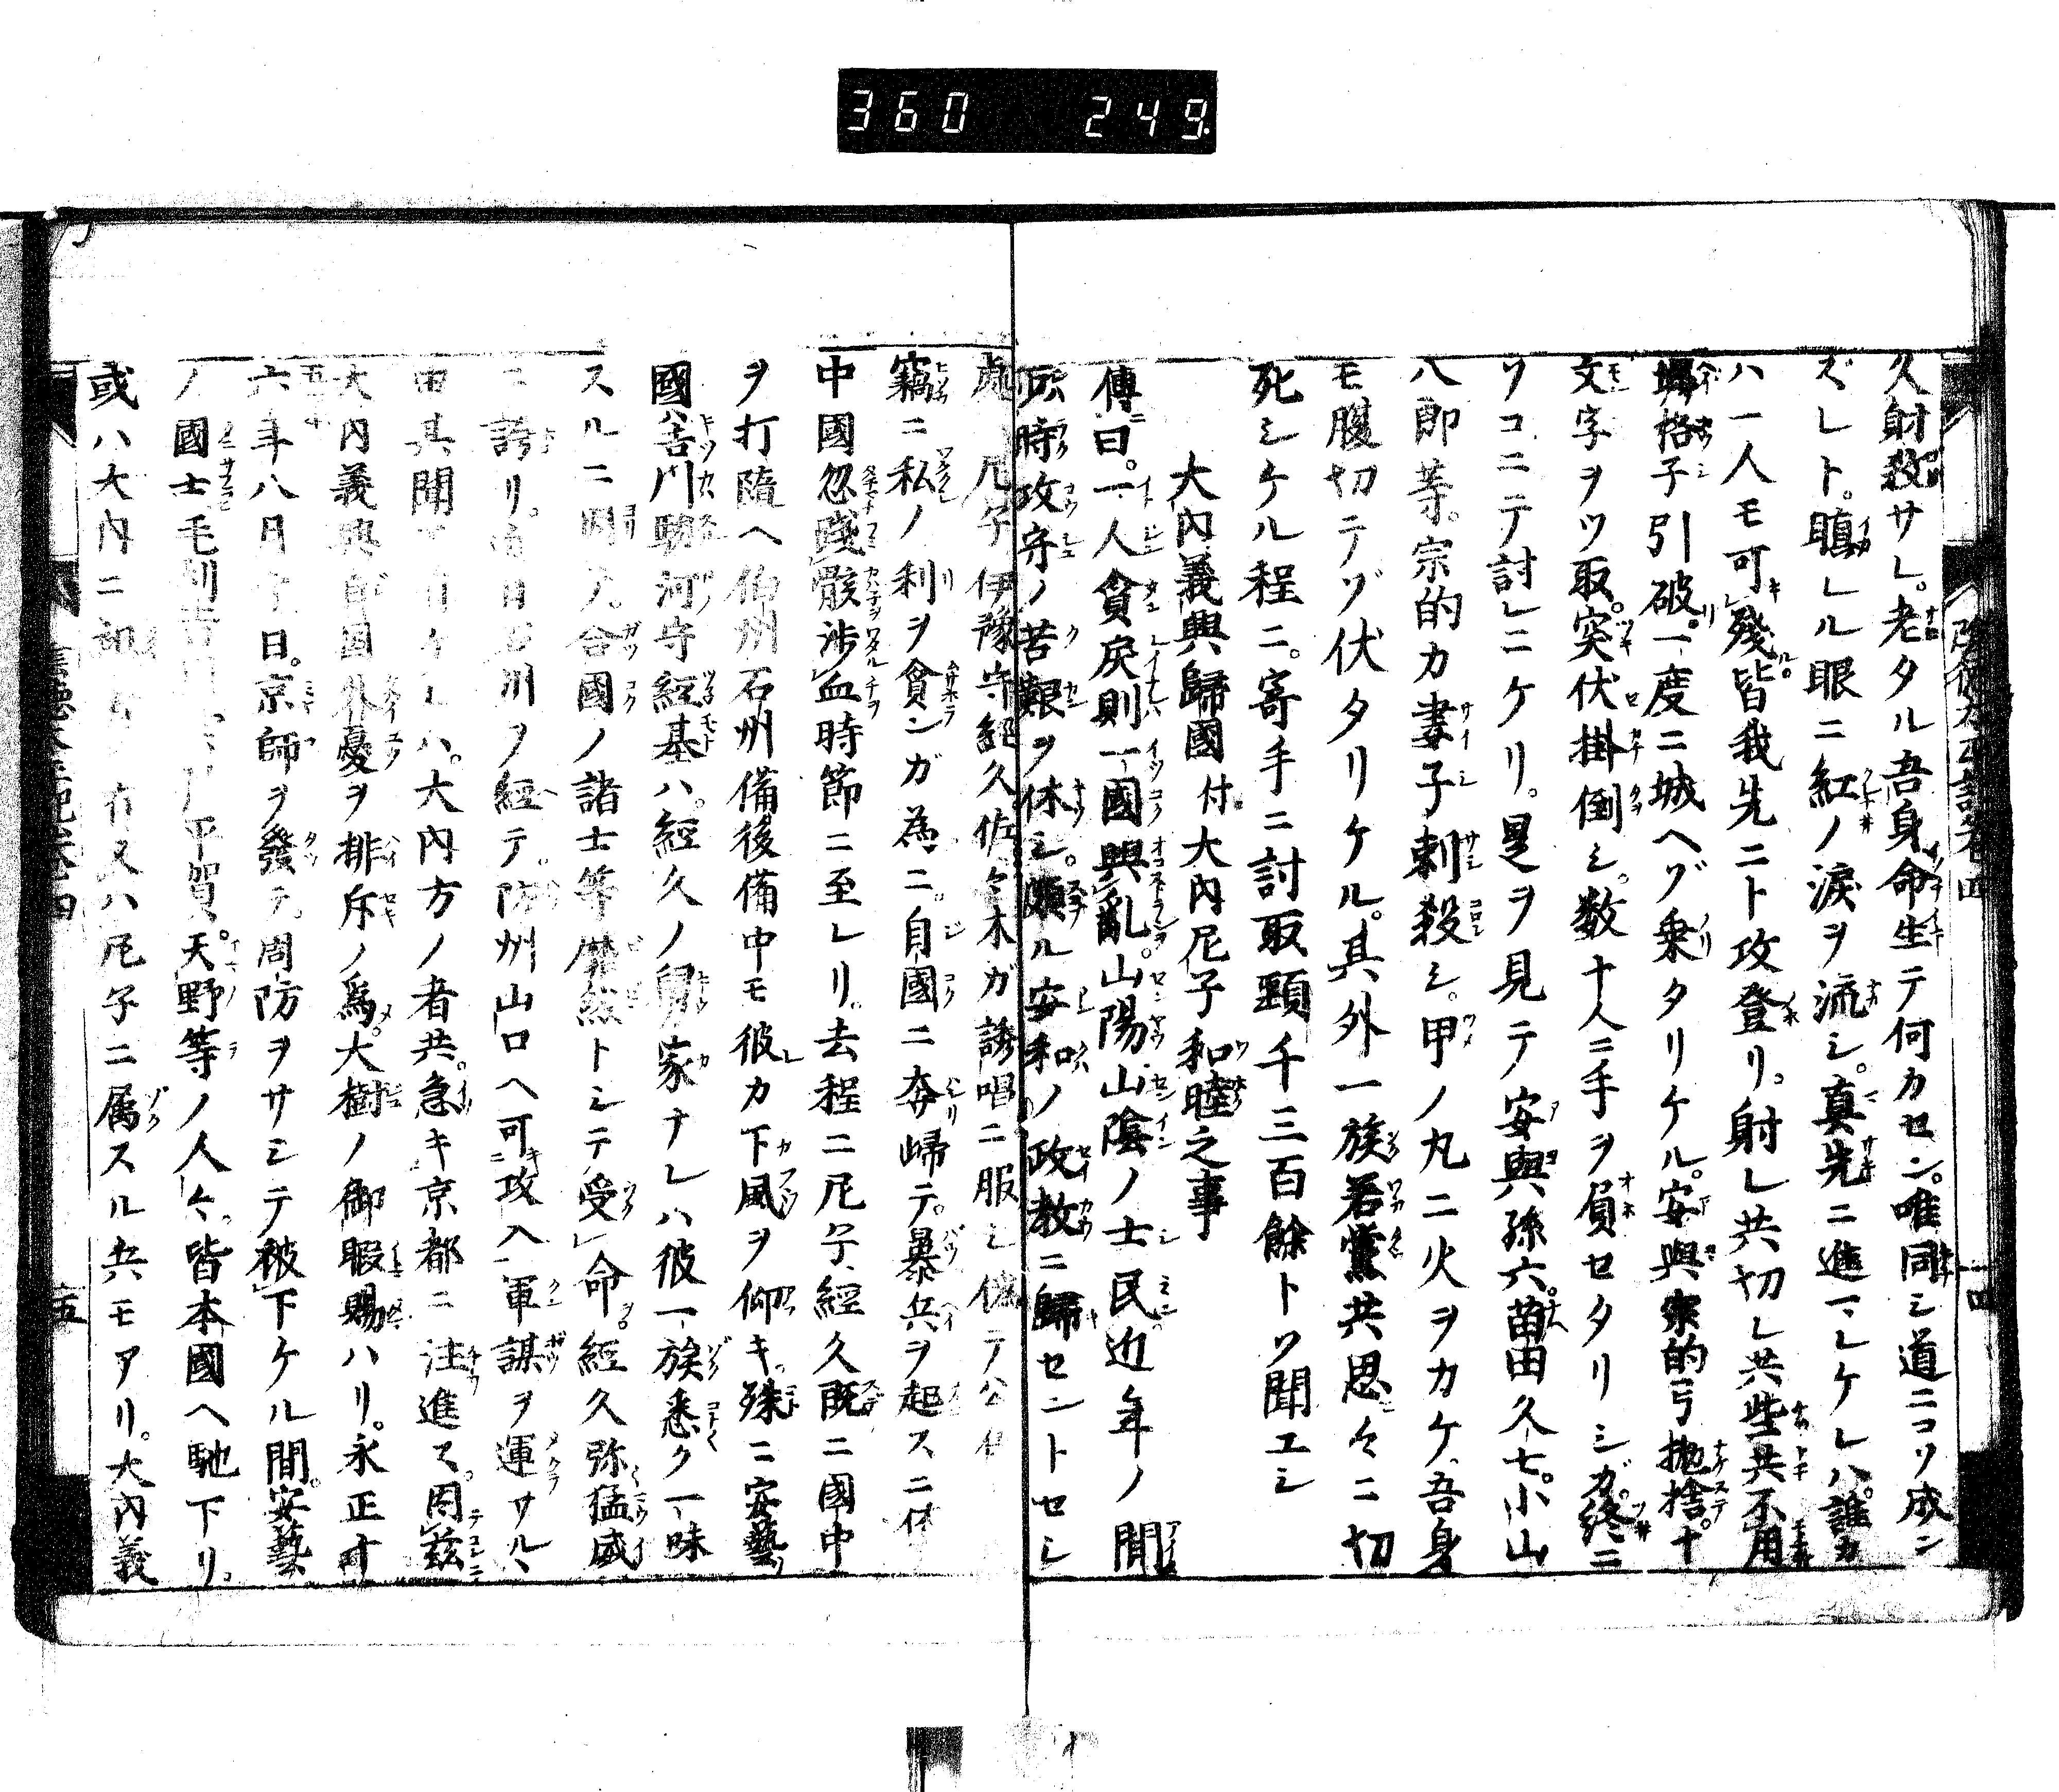 360 249
久射殺サレ。老タル吾身命生テ何カセン。唯同シ道ニコソ成ン
ズレト。瞋レル眼ニ紅ノ涙ヲ流シ。真先ニ進マレケレハ。誰カ
ハ一人モ可殘。皆我先ニト攻登リ。射レ共切レ共些共不用
塀格子引破。一度ニ城ヘゾ乗タリケル。安與宗的弓抛捨。十
文字ヲツ取。突伏掛倒シ。数十人ニ手ヲ負セタリシガ。終ニ
ソコニテ討レニケリ。是ヲ見テ安與孫六。苗田久七。小山
八郎等。宗的カ妻子刺殺シ。甲ノ丸ニ火ヲカケ、吾身
モ腹切テゾ伏タリケル。其外一族若黨共思々ニ切
死シケル程ニ。寄手ニ討取頸千三百餘トソ聞エシ
大内義興歸國 付 大内尼子和睦之事
傳曰。一人貪戻則一國興亂。山陽山陰ノ士民近年ノ間
時攻守ノ苦艱ヲ休シ。頗ル安和ノ政教ニ歸セントセシ
處 尼子伊豫守經久佐々木ガ誘唱ニ服シ テ公
竊ニ私ノ利ヲ貪ンガ為ニ。自國ニ奔歸テ。暴兵ヲ起スニ
中國忽殘骸渉血時節ニ至レリ。去程ニ尼子經久既ニ國中
ヲ打隨ヘ伯州石州備後備中モ彼カ下風ヲ仰キ。殊ニ安藝
國ハ吉川駿河守經基ハ。經久ノ舅家ナレハ彼一族悉ク一味
スルニ 。合國ノ諸士等靡然トシテ受命。經久弥猛威
ニ誇リ。 日石州ヲ經テ。防州山口ヘ可攻入軍謀ヲ運サルヽ
由其聞エ有ケレハ。大内方ノ者共。急キ京都ニ注進ス。因茲
大内義興自國外憂ヲ排斥ノ為。大樹ノ御暇賜ハリ。永正十
六年八月 日。京師ヲ發テ。周防ヲサシテ被下ケル間。安藝
ノ國士毛利吉川 平賀。天野等ノ人々。皆本國ヘ馳下リ。
或ハ大内ニ 有又ハ尼子ニ属スル兵モアリ。大内義